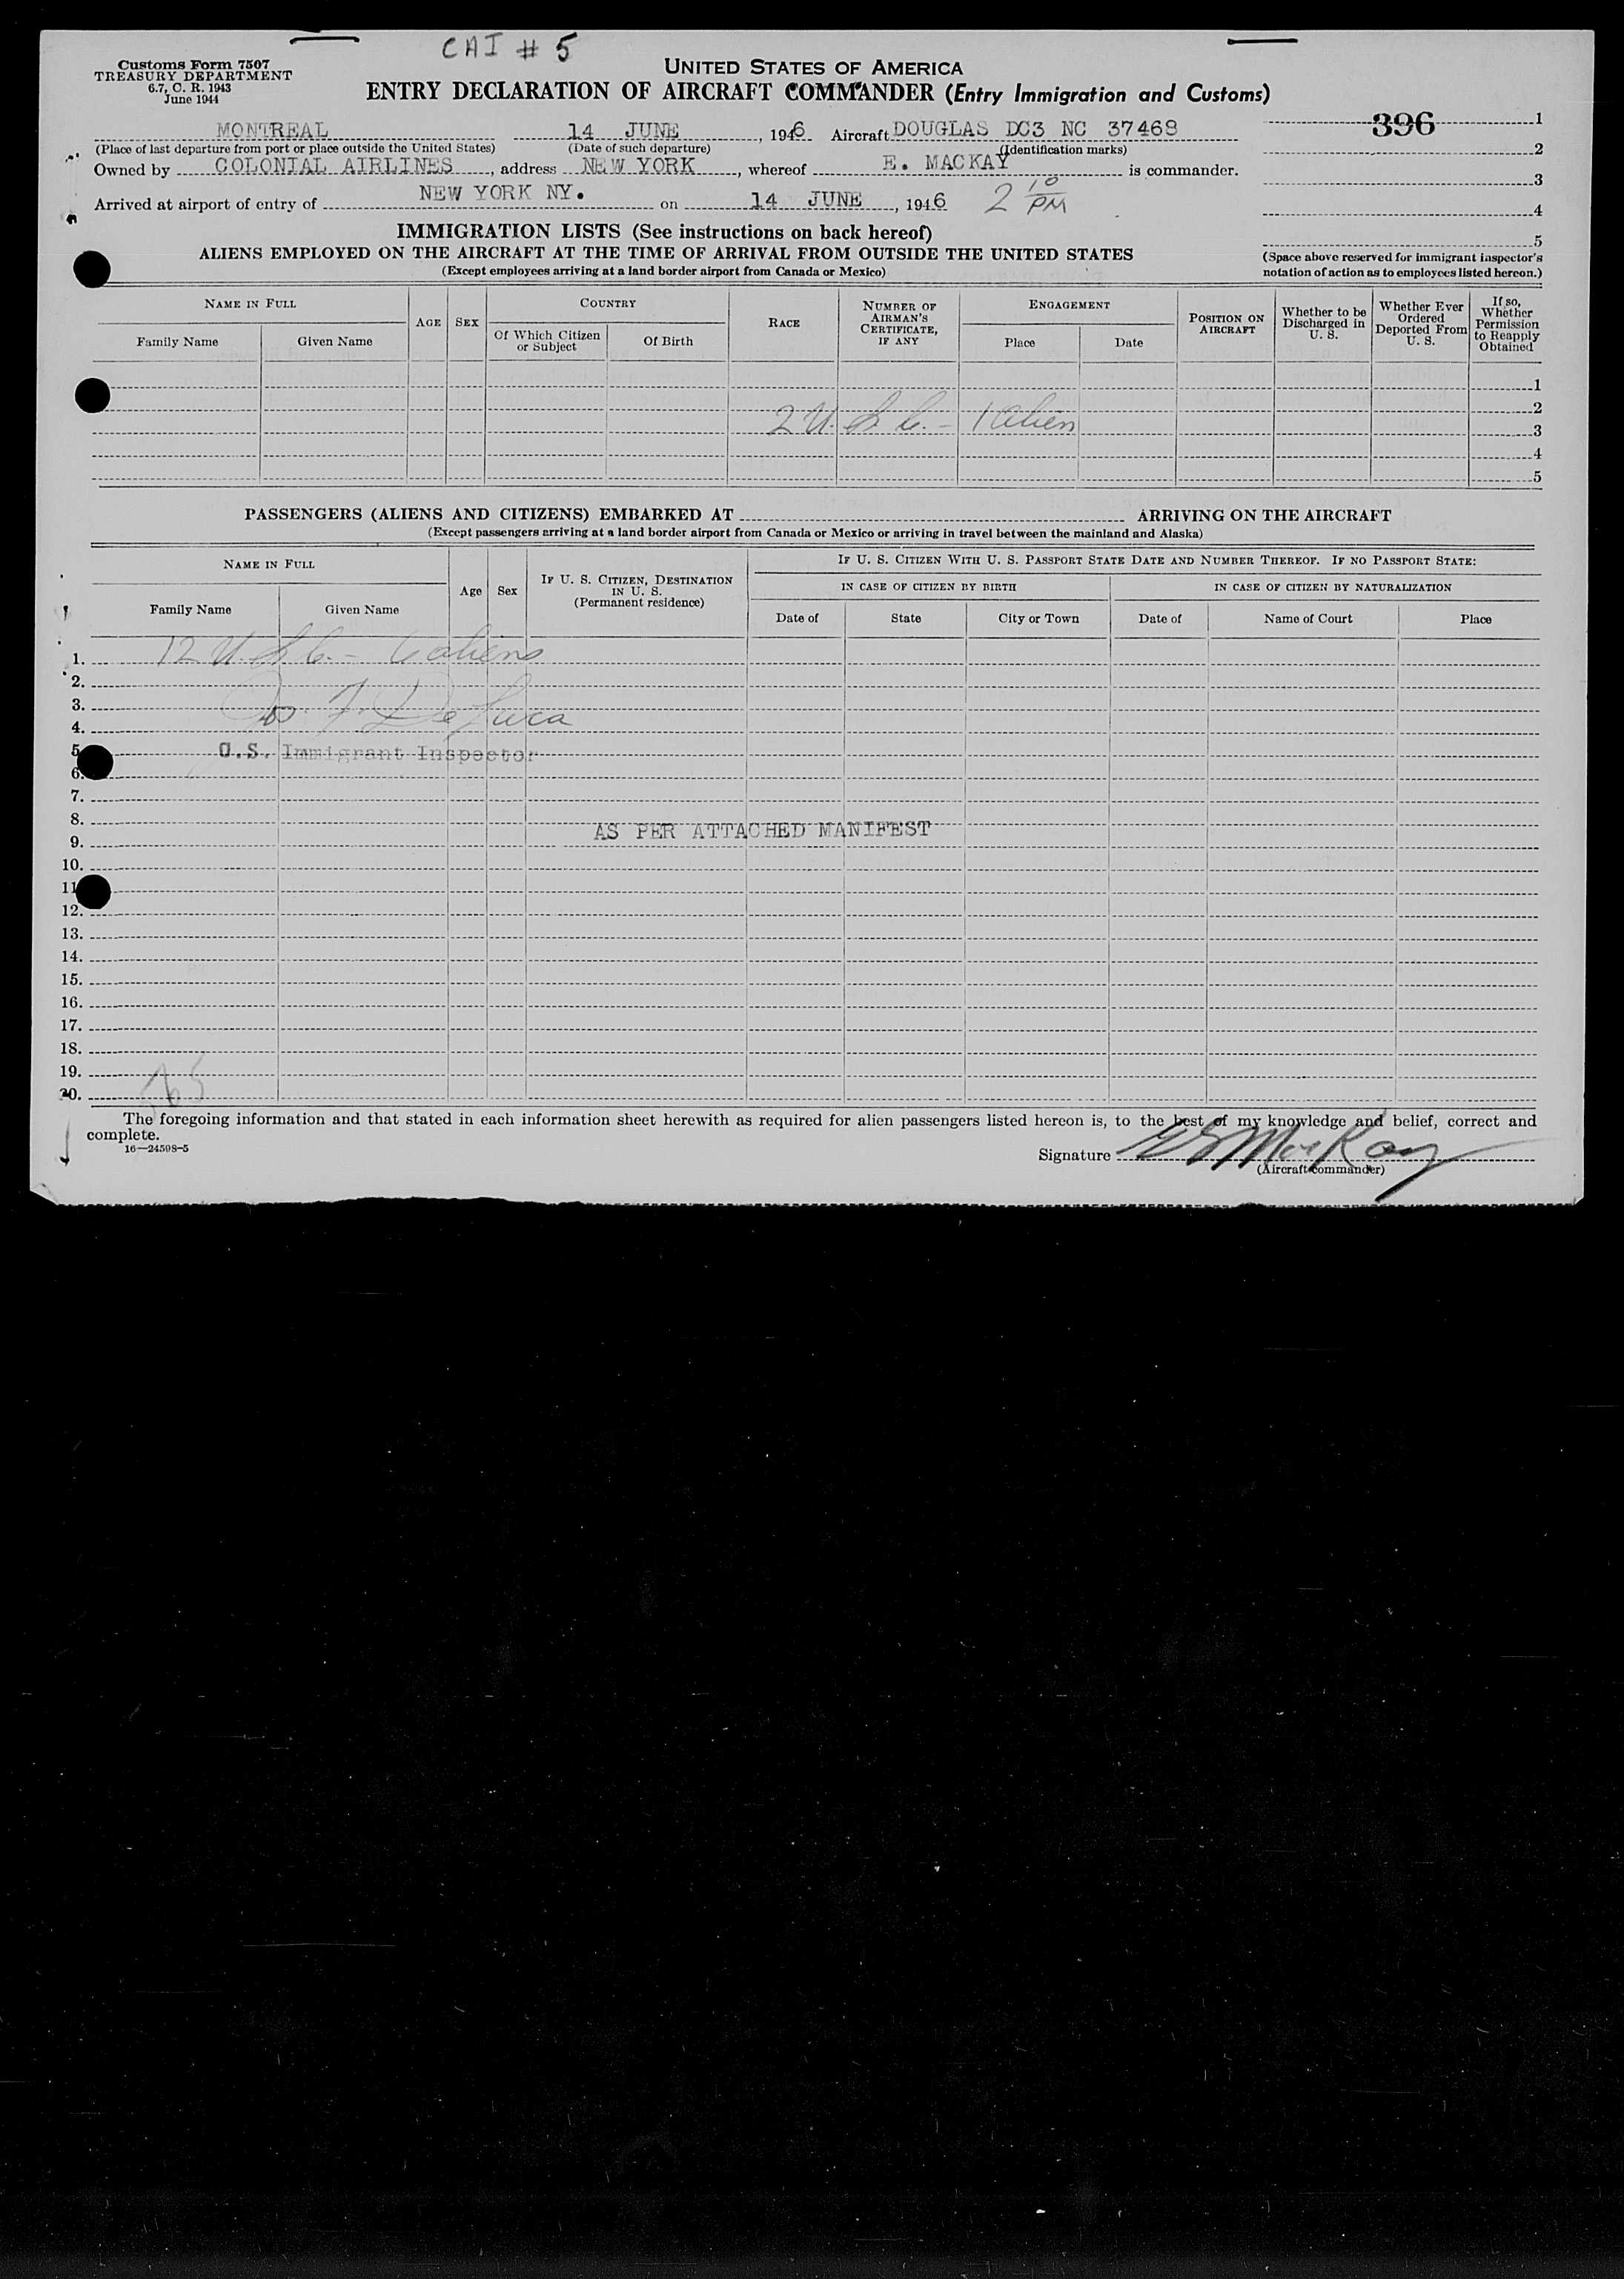 CAI # 5
Customs Form 7507
TREASURY DEPARTMENT
6.7, C. R. 1943
June 1944
UNITED STATES OF AMERICA
ENTRY DECLARATION OF AIRCRAFT COMMANDER (Entry Immigration and Customs)
MONTREAL 14 JUNE, 1946 Aircraft DOUGLAS DC3 NC 37468
(Place of last departure from port or place outside the United States) (Date of such departure) (Identification marks)
Owned by COLONIAL AIRLINES, address NEW YORK, whereof E. MACKAY is commander.
Arrived at airport of entry of NEW YORK NY. on 14 JUNE, 1946 2 10 PM
396 1
2
3
4
5
(Space above reserved for immigrant inspector's
notation of action as to employees listed hereon.)
IMMIGRATION LISTS (See instructions on back hereof)
ALIENS EMPLOYED ON THE AIRCRAFT AT THE TIME OF ARRIVAL FROM OUTSIDE THE UNITED STATES
(Except employees arriving at a land border airport from Canada or Mexico)
NAME IN FULL
Family Name
Given Name
AGE
SEX
COUNTRY
Of Which Citizen or Subject
Of Birth
RACE
NUMBER OF AIRMAN'S CERTIFICATE, IF ANY
ENGAGEMENT
Place
Date
POSITION ON AIRCRAFT
Whether to be Discharged in U. S.
Whether Ever Ordered Deported From U. S.
If so, Whether Permission to Reapply Obtained
1
2
2 U. S. C. - 1 Alien
3
4
5
PASSENGERS (ALIENS AND CITIZENS) EMBARKED AT ARRIVING ON THE AIRCRAFT
(Except passengers arriving at a land border airport from Canada or Mexico or arriving in travel between the mainland and Alaska)
NAME IN FULL
Family Name
Given Name
Age
Sex
IF U. S. CITIZEN, DESTINATION IN U. S. (Permanent residence)
IF U. S. CITIZEN WITH U. S. PASSPORT STATE DATE AND NUMBER THEREOF. IF NO PASSPORT STATE:
IN CASE OF CITIZEN BY BIRTH
Date of
State
City or Town
IN CASE OF CITIZEN BY NATURALIZATION
Date of
Name of Court
Place
1. 12 U. S. C. - 6 aliens
2.
3. Jos. F. DeLuca
4.
5. U.S. Immigrant Inspector
6.
7.
8.
AS PER ATTACHED MANIFEST
9.
10.
11
12.
13.
14.
15.
16.
17.
18.
19.
20.
The foregoing information and that stated in each information sheet herewith as required for alien passengers listed hereon is, to the best of my knowledge and belief, correct and
complete.
16—24598-5
Signature E S MacKay
(Aircraft commander)